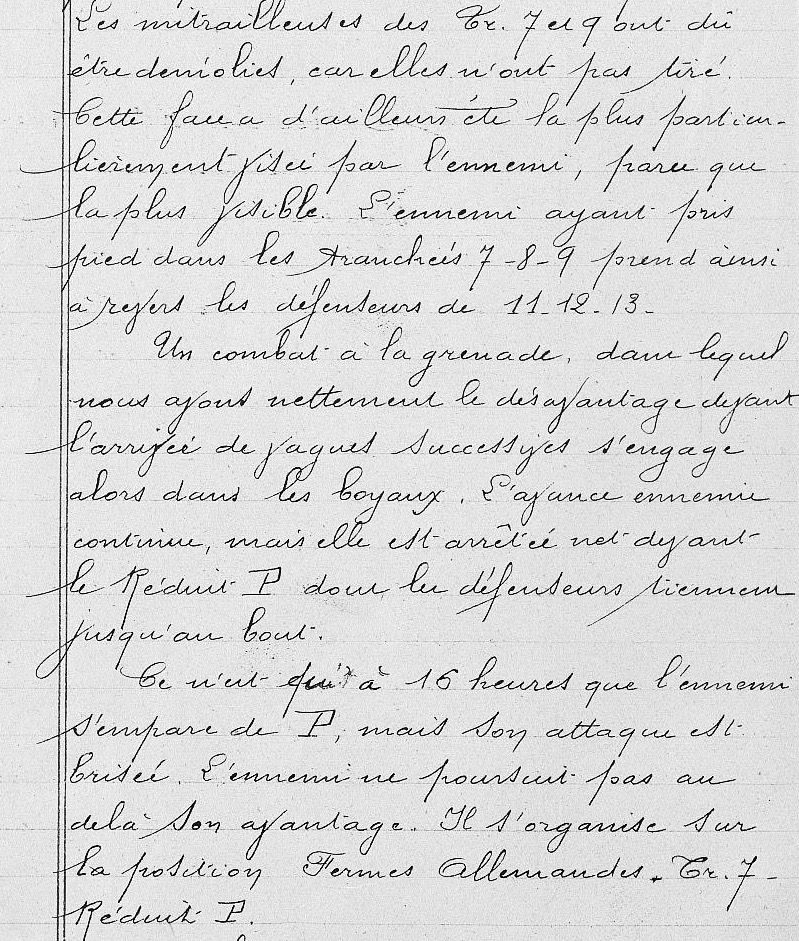 Les mitrailleuses des Tr. 7 et 9 ont dû
être démolies, car elles n'ont pas tiré.
Cette face a d'ailleurs été la plus particu-
lièrement visée par l'ennemi, parce que
la plus visible. L'ennemi ayant pris
pied dans les tranchées 7-8-9 prend ainsi
à revers les défenseurs de 11-12-13-
Un combat à la grenade, dans lequel
nous avons nettement le désavantage devant
l'arrivée de vagues successives s'engage
alors dans les boyaux. L'avance ennemie
continue, mais elle est arrêtée net devant
le Réduit P dont les défenseurs tiennent
jusqu'au bout.
Ce n'est qu'à 16 heures que l'ennemi
s'empare de P, mais son attaque est
brisée. L'ennemi ne poursuit pas au
delà son avantage. Il s'organise sur
la position Fermes Allemandes. Tr. 7-
Réduit P.